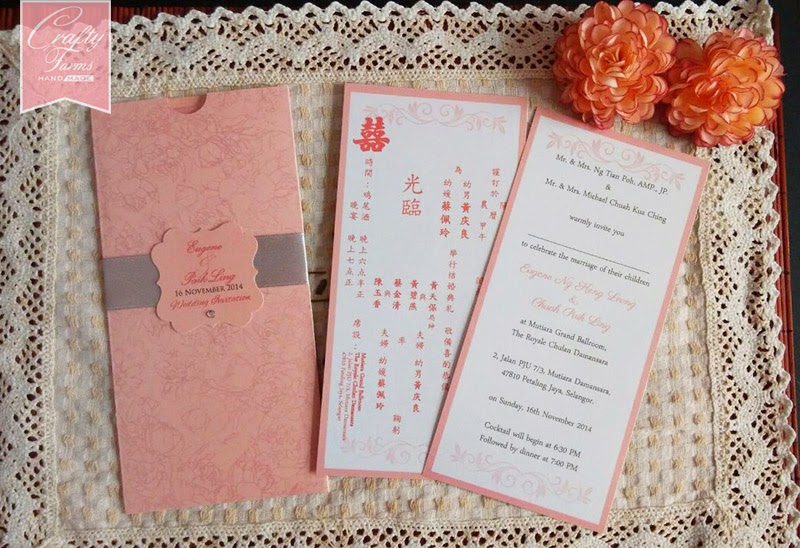 Crafty
Farms
HANDMADE
Eugene
&
Paik Ling
16 NOVEMBER 2014
Wedding Invitation
囍
謹訂於
農 甲午
為 幼男黃庆良
幼媛蔡佩玲
舉行結婚典礼
敬備喜酌
光臨
黃天保
黃碧燕
與
蔡金清
陳玉香
率
夫婦 幼男黃庆良
夫婦 幼媛蔡佩玲
鞠制
席設：
Mutiara Grand Ballroom
The Royale Chulan Damansara
2, Jalan PJU 7/3, Mutiara Damansara
47810 Petaling Jaya, Selangor
時間：鳴尾酒 晚上六点半正
晚宴 晚上七点正
Mr. & Mrs. Ng Tian Poh, AMP., JP.
&
Mr. & Mrs. Michael Chuah Kua Ching
warmly invite you
to celebrate the marriage of their children
Eugene Ng Heng Leong
&
Chuah Paik Ling
at Mutiara Grand Ballroom,
The Royale Chulan Damansara
2, Jalan PJU 7/3, Mutiara Damansara,
47810 Petaling Jaya, Selangor.
on Sunday, 16th November 2014
Cocktail will begin at 6:30 PM
Followed by dinner at 7:00 PM